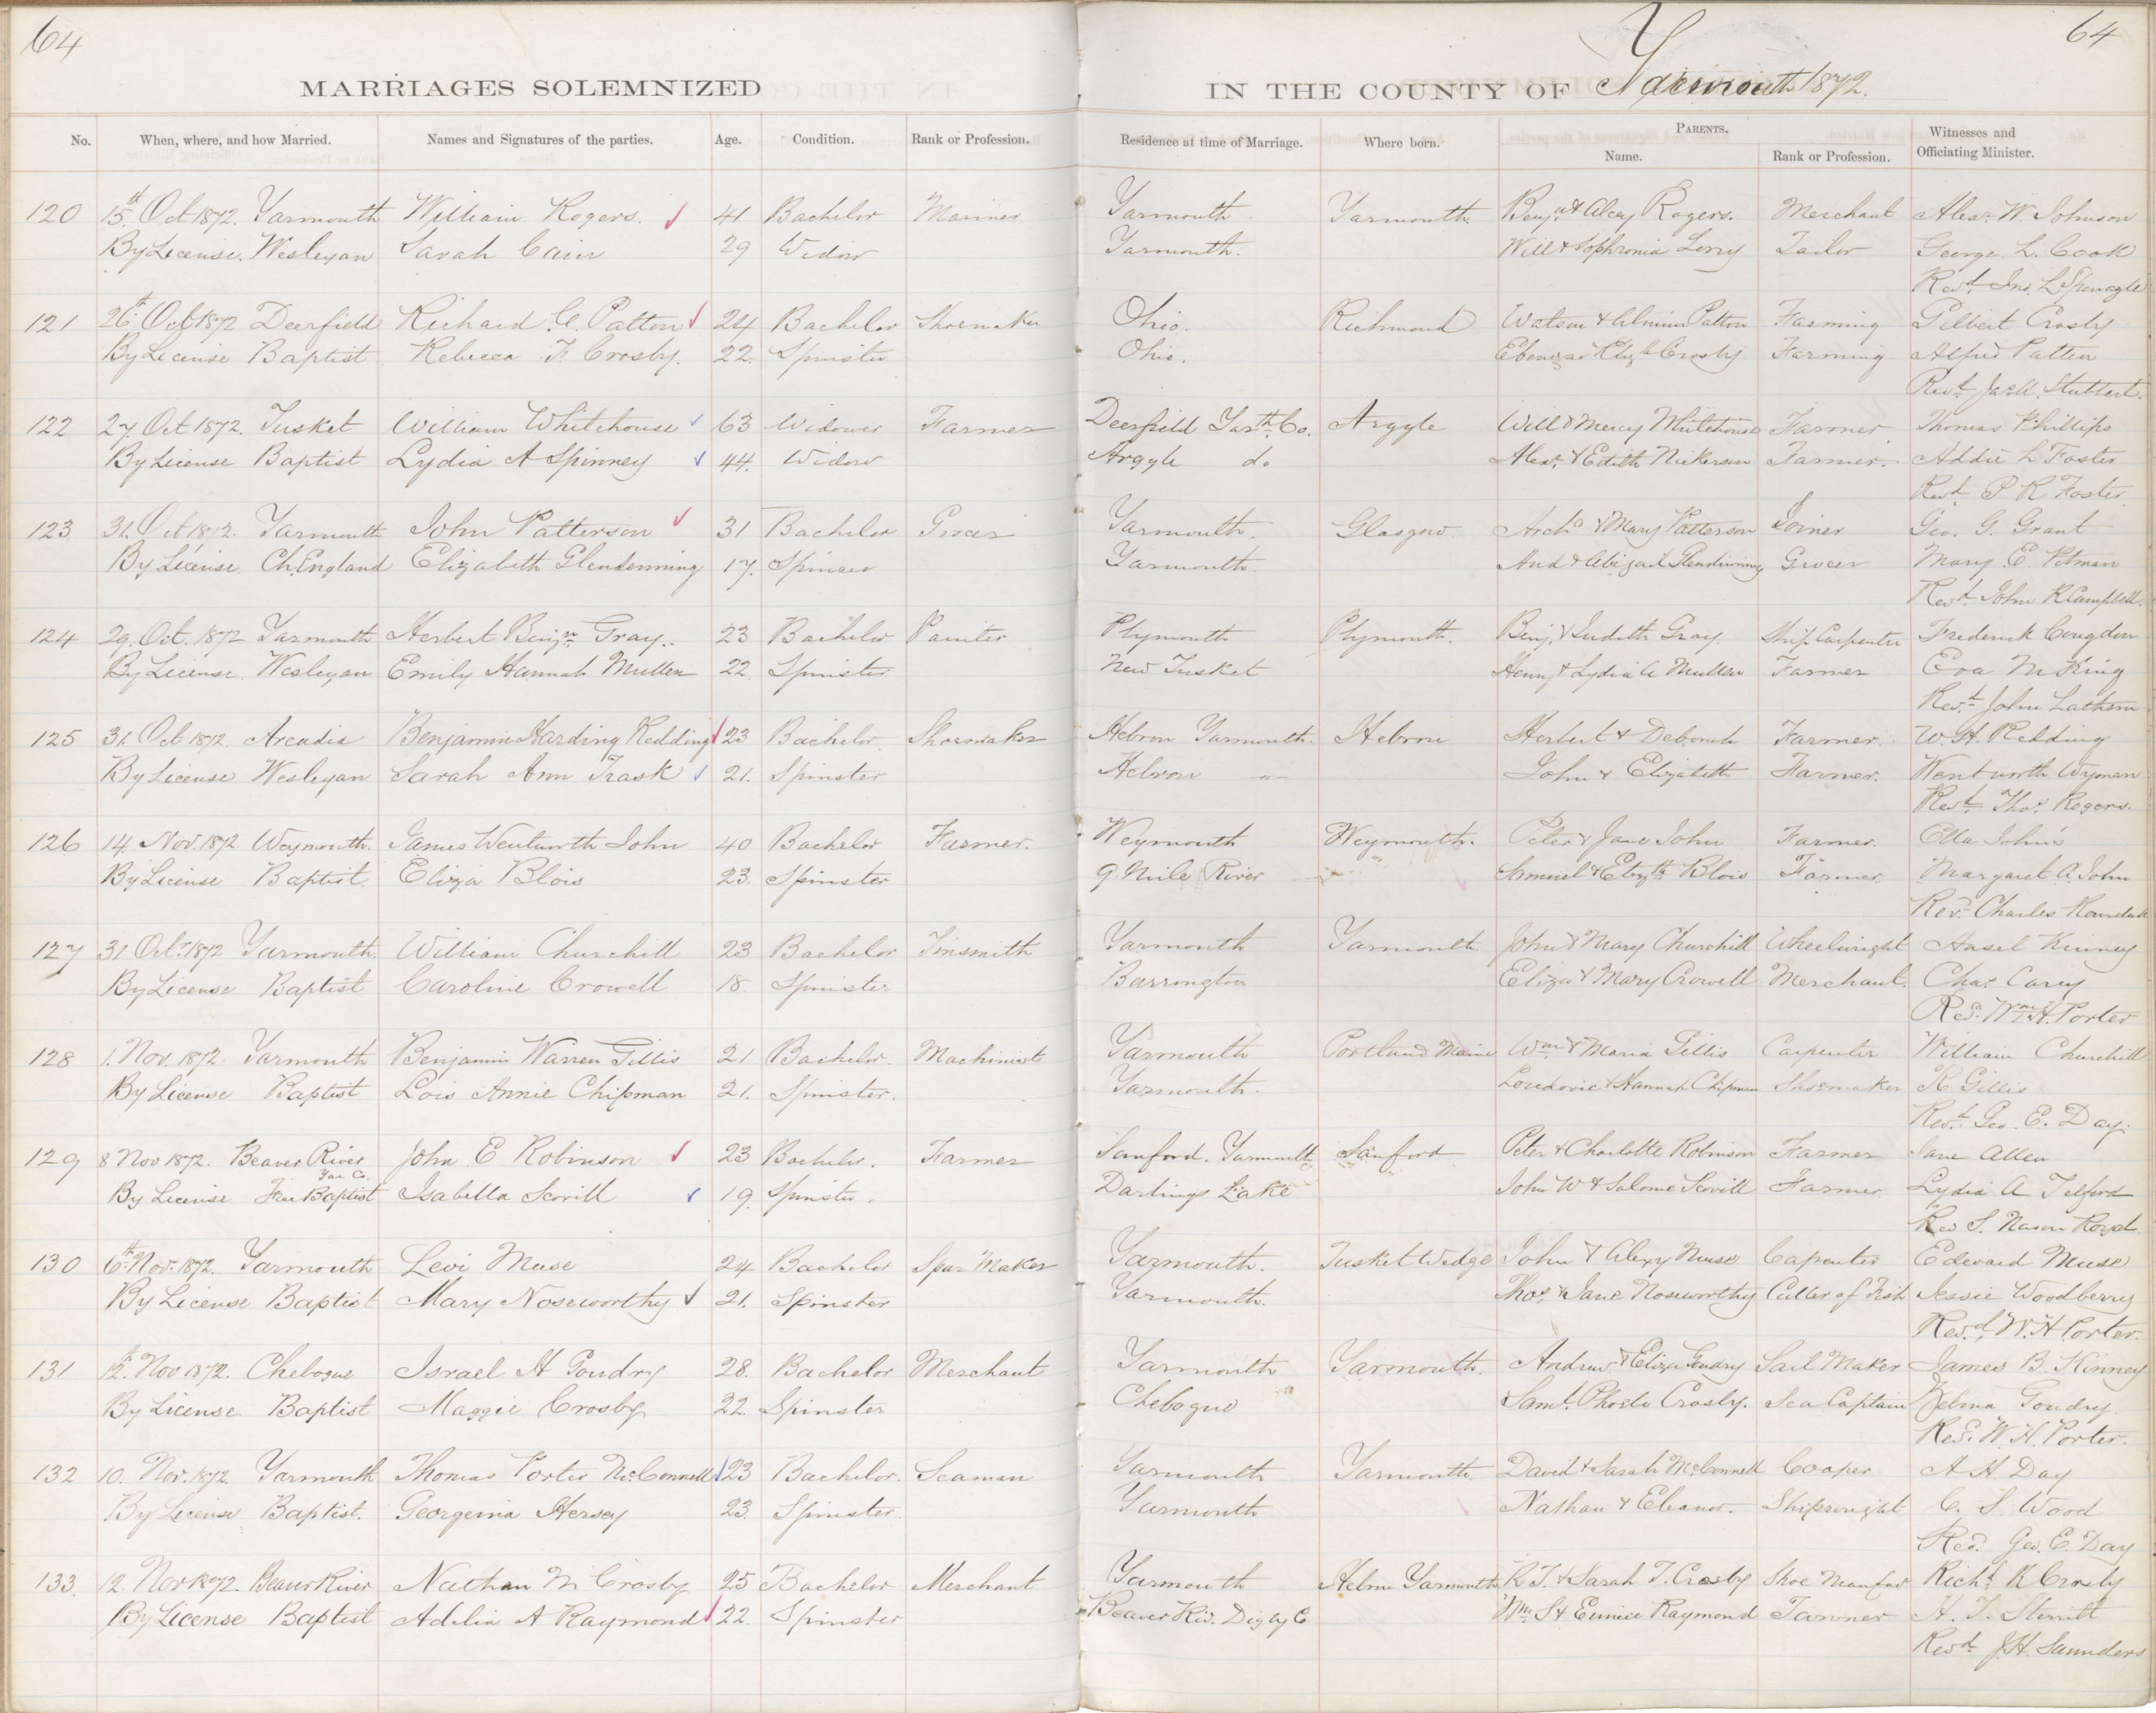 64
64
MARRIAGES SOLEMNIZED IN THE COUNTY OF Yarmouth 1872.
No. When, where, and how Married. Names and Signatures of the parties. Age. Condition. Rank or Profession. Residence at time of Marriage. Where born. PARENTS. Name. Rank or Profession. Witnesses and Officiating Minister.
120 15th Oct 1872. Yarmouth William Rogers. 41 Bachelor Mariner Yarmouth. Yarmouth. Benjn & Alcey Rogers. Merchant Alexr W. Johnson
By License. Wesleyan Sarah Cain 29 Widow Yarmouth. Will & Sophronia Lorry Tailor George L. Cook
Revd. Jno. L. Sponagle
121 26th Oct 1872 Deerfield Richard C. Patton 24 Bachelor Shoemaker Ohio. Richmond Watson & Patton Farming Gilbert Crosby
By License Baptist Rebecca F. Crosby. 22. Spinster Ohio. Ebenezar Elizh Crosby Farming Alfred Patten
Revd. Jas. A. Stubbert.
122 27. Oct 1872. Tusket William Whitehouse 63 Widower Farmer Deerfield Yarth. Co. Argyle Will & Mercy Whitehouse Farmer Thomas Phillips
By License Baptist Lydia A Spinney 44. Widow Argyle do Alexr. & Edith Nickerson Farmer. Addie L Foster
Revd P R Foster
123 31. Oct 1872. Yarmouth John Patterson 31 Bachelor Grocer Yarmouth. Glasgow. Archd & Mary Patterson Joiner Geo. G. Grant
By License. Ch. England Elizabeth Glendenning 17. Spinster Yarmouth. And & Abigail Glendinning Grocer Mary E. Pitman
Revd. John R Campbell.
124 29. Oct. 1872 Yarmouth Herbert Benjn Gray. 23 Bachelor Painter Plymouth Plymouth. Benj. & Judith Gray Ship Carpenter Frederick Congdon
By License. Wesleyan Emily Hannah Mullen 22. Spinster New Tusket Henry & Lydia A Mullen Farmer Eva M King
Revd. John Lathern
125 31. Oct 1872. Arcadia Benjamin Harding Redding 23 Bachelor. Shoemaker Hebron Yarmouth. Hebron Herbert & Deborah Farmer. W. H. Redding
By License Wesleyan Sarah Ann Trask 21. Spinster Hebron -"- John & Elizabeth Farmer. Wentworth Wyman
Revd. Thos. Rogers.
126 14. Nov. 1872. Weymouth. James Wentworth John 40 Bachelor Farmer. Weymouth Weymouth. Peter & Jane John Farmer. Ella Johns
By License Baptist. Eliza Blois 23. Spinster 9 Mile River Samuel & Elizth Blois Farmer Margaret A. John
Revd. Charles Randall
127 31 Octr. 1872 Yarmouth. William Churchill 23 Bachelor Tinsmith Yarmouth Yarmouth John & Mary Churchill Wheelwright Hasel Kinney
By License Baptist Caroline Crowell 18. Spinster Barrington Eliza & Mary Crowell Merchant. Chas. Carey
Revd. Wm. H. Porter
128 1. Nov. 1872. Yarmouth Benjamin Warren Gillis 21 Bachelor. Machinist Yarmouth Portland Maine Wm & Maria Gillis Carpenter William Churchill
By License Baptist Lois Annie Chipman 21. Spinster. Yarmouth. Loudovic & Hannah Chipman Shoemaker R Gillis
Revd. Geo. E. Day.
129 8 Nov 1872. Beaver River Yar Co. John E Robinson 23 Bachelor. Farmer Sanford. Yarmouth Sanford Peter & Charlotte Robinson Farmer Jane Allen
By License Free Baptist Isabella Scovill 19. Spinster. Darlings Lake John W & Salome Scovill Farmer. Lydia A Telford
Rev S. Nason Royal
130 6th. Nov. 1872. Yarmouth Levi Muse 24 Bachelor Spar Maker Yarmouth. Tusket Wedge John & Alexy Muse Carpenter Edward Muse
By License Baptist Mary Noseworthy 21. Spinster Yarmouth. Thos. & Jane Noseworthy Culler of Fish Jessie Woodberry
Revd. W. H Porter.
131 12th. Nov 1872. Chebogue Israel H Goudry 28. Bachelor Merchant Yarmouth Yarmouth. Andrew & Eliza Goudry Sail Maker James B. Kinney
By License. Baptist Maggie Crosby 22. Spinster Chebogue Saml. Phoebe Crosby. Sea Captain Zelma Goudry.
Revd. W. H. Porter.
132 10. Nov. 1872. Yarmouth Thomas Porter McConnell 23 Bachelor. Seaman Yarmouth Yarmouth. David & Sarah McConnell Cooper A H. Day
By License Baptist. Georgenia Hersey 23. Spinster. Yarmouth Nathan & Eleanor. Shipwright C. S. Wood
Revd. Geo. E. Day
133. 12. Nov 1872. Beaver River Nathan M Crosby 25 Bachelor Merchant Yarmouth Hebron Yarmouth R. T. & Sarah T. Crosby Shoe Manfac Richd. R Crosby
By License Baptist Adelia A Raymond 22. Spinster Beaver Riv. Digby C Wm. S & Eunice Raymond Tanner H. T. Sterritt
Revd. J. H. Saunders